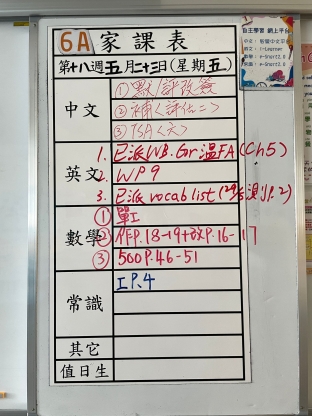 6A 家課表
第十八週五月二十三日(星期五)
中文
① 默/評改簽
② 補〈評估二〉
③ TSA〈六〉
英文
1. 已派WB.Gr溫FA(Ch5)
2. WP9
3. 已派vocab list (29/5測P.2)
數學
① 單工
② 作P.18-19+改P.16-17
③ 500P.46-51
常識
工P.4
其它
值日生
自主學習 網上平台